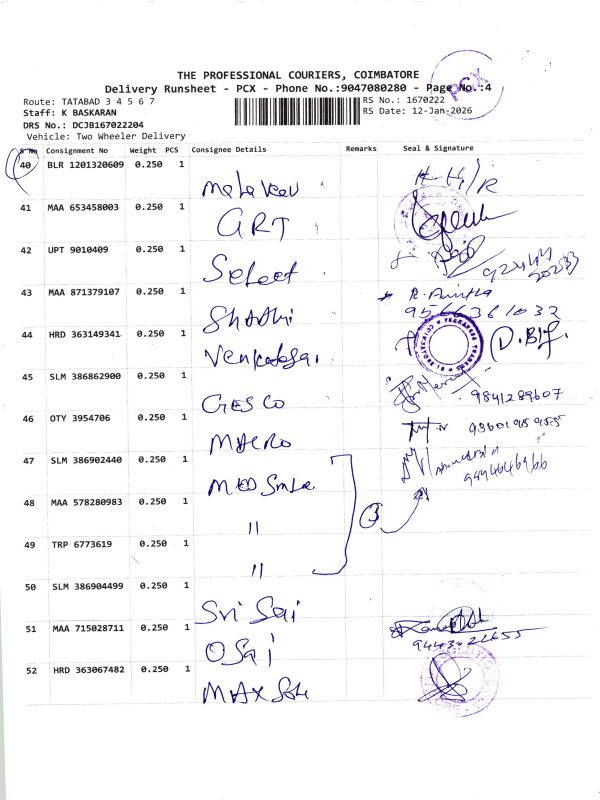 THE PROFESSIONAL COURIERS, COIMBATORE
Delivery Runsheet - PCX - Phone No.:9047080280 - Page No.:4
PCX
Route: TATABAD 3 4 5 6 7
RS No.: 1670222
Staff: K BASKARAN
RS Date: 12-Jan-2026
DRS No.: DCJB167022204
Vehicle: Two Wheeler Delivery
S No Consignment No Weight PCS Consignee Details Remarks Seal & Signature
40 BLR 1201320609 0.250 1
41 MAA 653458003 0.250 1
GRT
42 UPT 9010409 0.250 1
Select
43 MAA 871379107 0.250 1
Shadhi
44 HRD 363149341 0.250 1
D.B
45 SLM 386862900 0.250 1
GESCO
9841289607
46 OTY 3954706 0.250 1
MACRO
47 SLM 386902440 0.250 1
48 MAA 578280983 0.250 1
"
3
49 TRP 6773619 0.250 1
"
50 SLM 386904499 0.250 1
Sri Sai
51 MAA 715028711 0.250 1
OSai
52 HRD 363067482 0.250 1